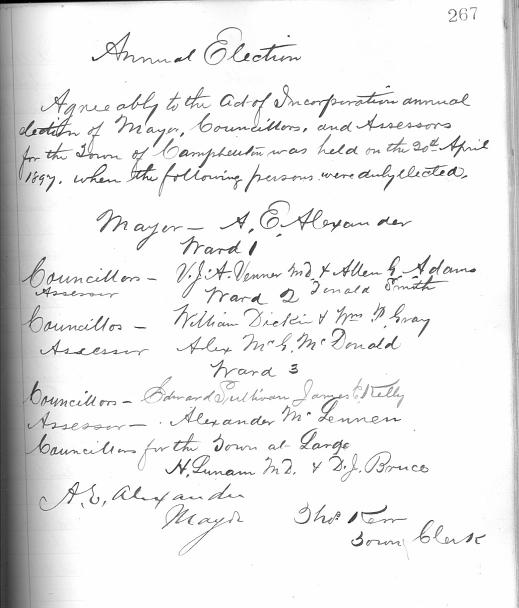 267
Annual Election
Agreeably to the Act of Incorporation annual
election of Mayor, Councillors, and Assessors
for the Town of Campbellton was held on the 20th April
1897, when the following persons were duly elected.
Mayor - A. E. Alexander
Ward 1
Councillors - V. J. A. Venner MD & Allen G. Adams
Assessor Donald Smith
Ward 2
Councillos - William Dickie & Wm P. Gray
Assessor Alex McG. McDonald
Ward 3
Councillors - Edward Sullivan James Kelly
Assessor - Alexander McLennen
Councillors for the Town at Large
H. Lunam MD. & D. J. Bruce
A. E. Alexander
Mayor
Thos Kerr
Town Clerk